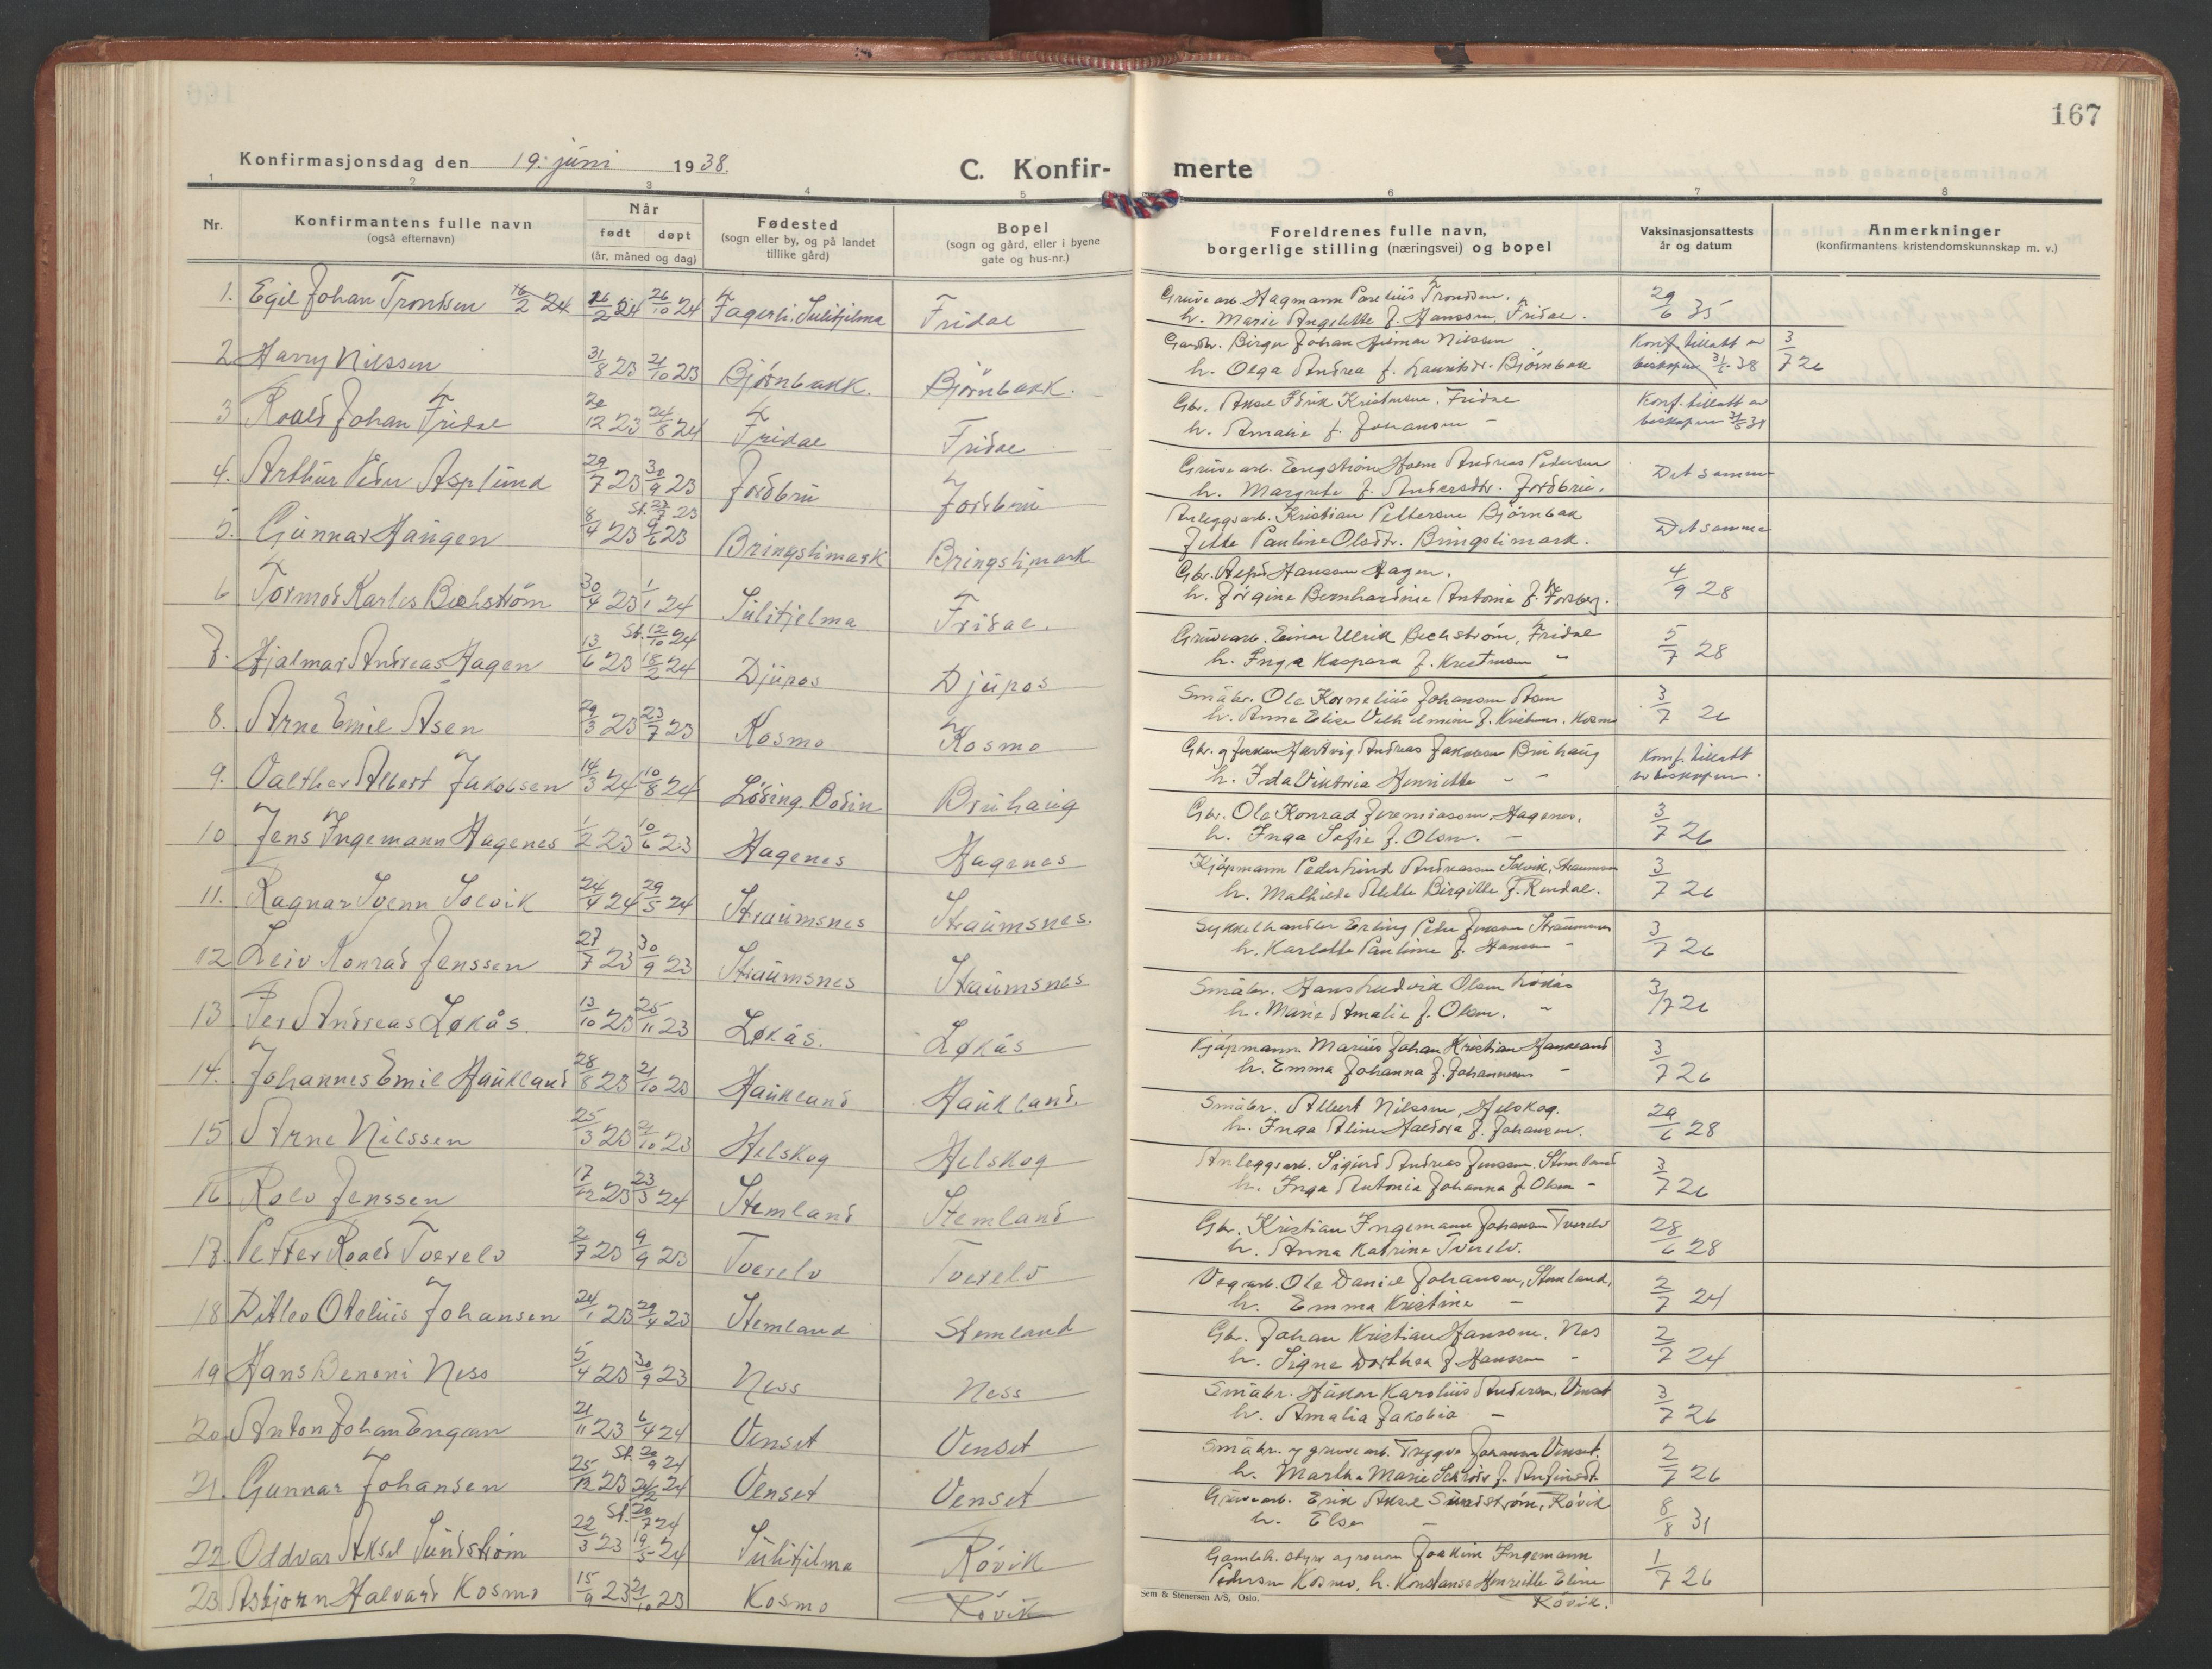 167
Konfirmasjonsdag den 19. juni 1938.
C. Konfir- merte
1 2 3 4 5 6 7 8
Nr.
Konfirmantens fulle navn
(også efternavn)
Når
født døpt
(år, måned og dag)
Fødested
(sogn eller by, og på landet
tillike gård)
Bopel
(sogn og gård, eller i byene
gate og hus-nr.)
Foreldrenes fulle navn,
borgerlige stilling (næringsvei) og bopel
Vaksinasjonsattests
år og datum
Anmerkninger
(konfirmantens kristendomskunnskap m. v.)
1. Egil Johan Trondsen 16/2 24 16/2 24 26/10 24 Fagerli, Sulitjelma Fridal
Gruvearb. Hagmann Parelius Trondsen.
h. Marie Angelette f. Hanssen, Fridal. 29/6 35
2 Harry Nilssen 31/8 23 21/10 23 Bjørnbakk. Bjørnbakk.
Birger Johan Hilmar Nilssen
h. Olga Andrea f. Lauritsdr. Bjørnbak
Konf. tillatt av
biskopen 31/5 38 3/7 26
3 Roald Johan Fridal 20/12 23 24/8 24 Fridal Fridal
Gbr. Aksel Edrik Kristensen, Fridal
h. Amalie f. Johansen -
Konf. tillatt av
biskopen 31/5 38
4. Arthur Peder Asplund 29/7 23 30/9 23 Jordbru Jordbru
Gruvearb. Engstrøm Holm Andreas Pedersen
h. Margrete f. Andersdtr. Jordbru.
Det samme
5. Gunnar Haugen 8/4 23 St. 22/7 23 9/6 23 Bringslimark Bringslimark
Anleggsarb. Kristian Pettersen Bjørnbak
Jette Pauline Olsdtr. Bringslimark.
Det samme
6 Tormod Karles Bechstrøm 30/4 23 1/1 24 Sulitjelma Fridal.
Gbr. Alfred Hanssen Hagen.
h. Jørgine Bernhardine Antonie f. Forsberg.
4/9 28
7. Hjalmar Andreas Hagen 13/6 23 St. 12/10 24 18/2 24 Djupos Djupos
Gruvearb. Einar Ulrik Bechstrøm, Fridal
h. Inga Kaspara f. Kristensen "
5/7 28
8. Arne Emil Åsen 29/3 23 23/7 23 Kosmo Kosmo
Småbr. Ole Kornelius Johansen Åsen
h. Anna Elise Vilhelmine f. Kristensen. Kosmo
3/7 26
9. Valther Albert Jakobsen 14/3 24 10/8 24 Løding, Bodin Bruhaug
Gbr. og Hartvig Andreas Jakobsen Bruhaug
h. Ida Viktoria Henriette - -
Konf. tillatt
av biskopen.
10 Jens Ingemann Hagenes 1/2 23 10/6 23 Hagenes Hagenes
Gbr. Ole Konrad Jeremiassen, Hagenes.
h. Inga Sofie f. Olsen. -
3/7 26
11. Ragnar Svenn Solvik 24/4 24 29/5 24 Straumsnes Straumsnes.
Kjøpmann Peder Lind Andreassen Solvik, Straumsnes
h. Mathilde Alette Birgitte f. Rendal.
3/7 26
12 Leiv Konrad Jenssen 27/7 23 30/9 23 Straumsnes Straumsnes
Sykkelhandler Erling Peder Jenssen Straumsnes
h. Karlotte Pauline f. Hansen -
3/7 26
13 Per Andreas Løkås. 13/10 23 25/11 23 Løkås. Løkås
Småbr. Hans Ludvik Olsen Løkås
h. Marie Amalie f. Olsen. "
3/7 26
14. Johannes Emil Haukland 28/8 23 21/10 23 Haukland Haukland.
Kjøpmann Marius Johan Kristian Haukland
h. Emma Johanna f. Johannessen -
3/7 26
15 Arne Nilssen 25/3 23 21/10 23 Helskog Helskog
Småbr. Albert Nilssen, Helskog.
h. Inga Aline Haldora f. Johansen.
29/6 28
16 Rolv Jenssen 17/12 23 23/3 24 Stemland Stemland
Anleggsarb. Sigurd Andreas Jenssen. Stemland
h. Inga Antonia Johanna f. Olsen -
3/7 26
17. Petter Roald Tverelv 2/7 23 9/9 23 Tverelv Tverelv
Gbr. Kristian Ingemann Johansen Tverelv
h. Anna Katrine Tverelv.
28/6 28
18 Ditlev Otelius Johansen 24/1 23 29/4 23 Stemland Stemland
Vegarb. Ole Daniel Johansen, Stemland,
h. Emma Kristine -
2/7 24
19 Hans Benoni Ness 5/4 23 30/9 23 Ness Ness
Gbr. Johan Kristian Hanssen, Nes
h. Signe Dorthea f. Hanssen -
2/7 24
20. Anton Johan Engan 21/11 23 6/4 24 Venset Venset
Småbr. Håkon Karolius Andersen, Venset
h. Amalia Jakobia -
3/7 26
21. Gunnar Johansen 25/12 23 St. 20/9 24 24/2 24 Venset Venset
Småbr. og gruvearb. Trygve Johansen Venset.
h. Martha Marie f.
2/7 26
22 Oddvar Aksel Sundstrøm 22/3 23 St. 20/7 24 19/5 24 Sulitjelma Røvik
Gruvearb. Erik Aksel Sundstrøm, Røvik
h. Elsa -
8/8 31
23 Asbjørn Halvard Kosmo 15/9 23 21/10 23 Kosmo Røvik
Joakim Ingemann
Pedersen Kosmo, h. Konstanse Henriette Eline
Røvik.
1/7 26
Sem & Stenersen A/S, Oslo.